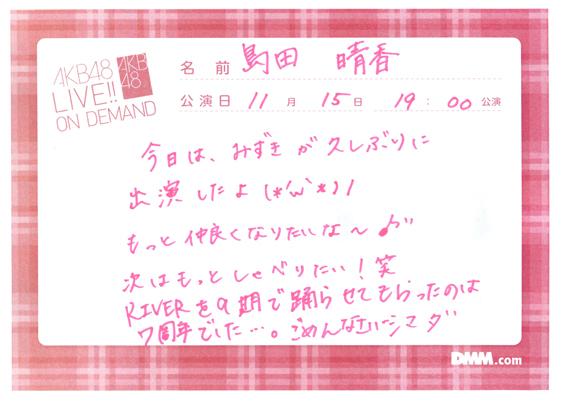 AKB48
LIVE!!
ON DEMAND
AKB
48
名前 島田 晴香
公演日 11月 15日 19:00 公演
今日は、みずきが久しぶりに
出演したよ(*'ω`*)ﾉ
もっと仲良くなりたいな〜♪
次はもっとしゃべりたい!笑
RIVERを9期で踊らせてもらったのは
7周年でした…。ごめんなさいシマダ
DMM.com